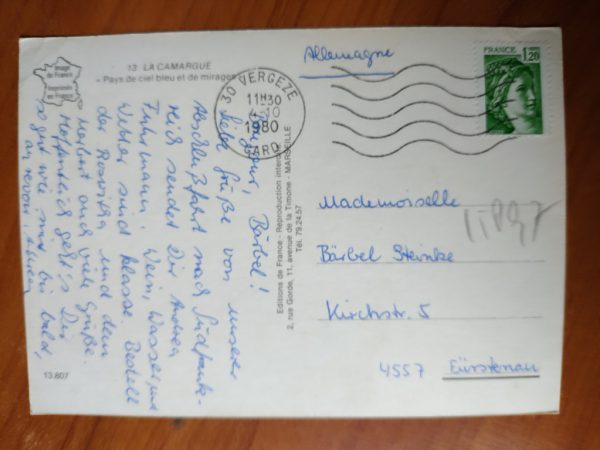 13 LA CAMARGUE
« Pays de ciel bleu et de mirages
Image
de France
Imprimée
en France
Allemagne
FRANCE
1,20
30 VERGEZE
11H30
4-10
1980
GARD
Bonjour, Bärbel!
liebe Grüße von unserer
Abschlußfahrt nach Südfrank-
reich sendet Dir Andrea
Fuhrmann! Wein, Wasser, und
Wetter sind klasse. Bestell
der Roswitha und dem
Norbert auch viele Grüße.
Hoffentlich geht's Dir
so gut wie mir bis bald,
au revoir,
Editions de France - Reproduction interdite
2, rue Gorde, 11, avenue de la Timone - MARSEILLE
Tél. 79.24.57
Mademoiselle
Bärbel Steinke
Kirchstr. 5
4557 Fürstenau
13.807